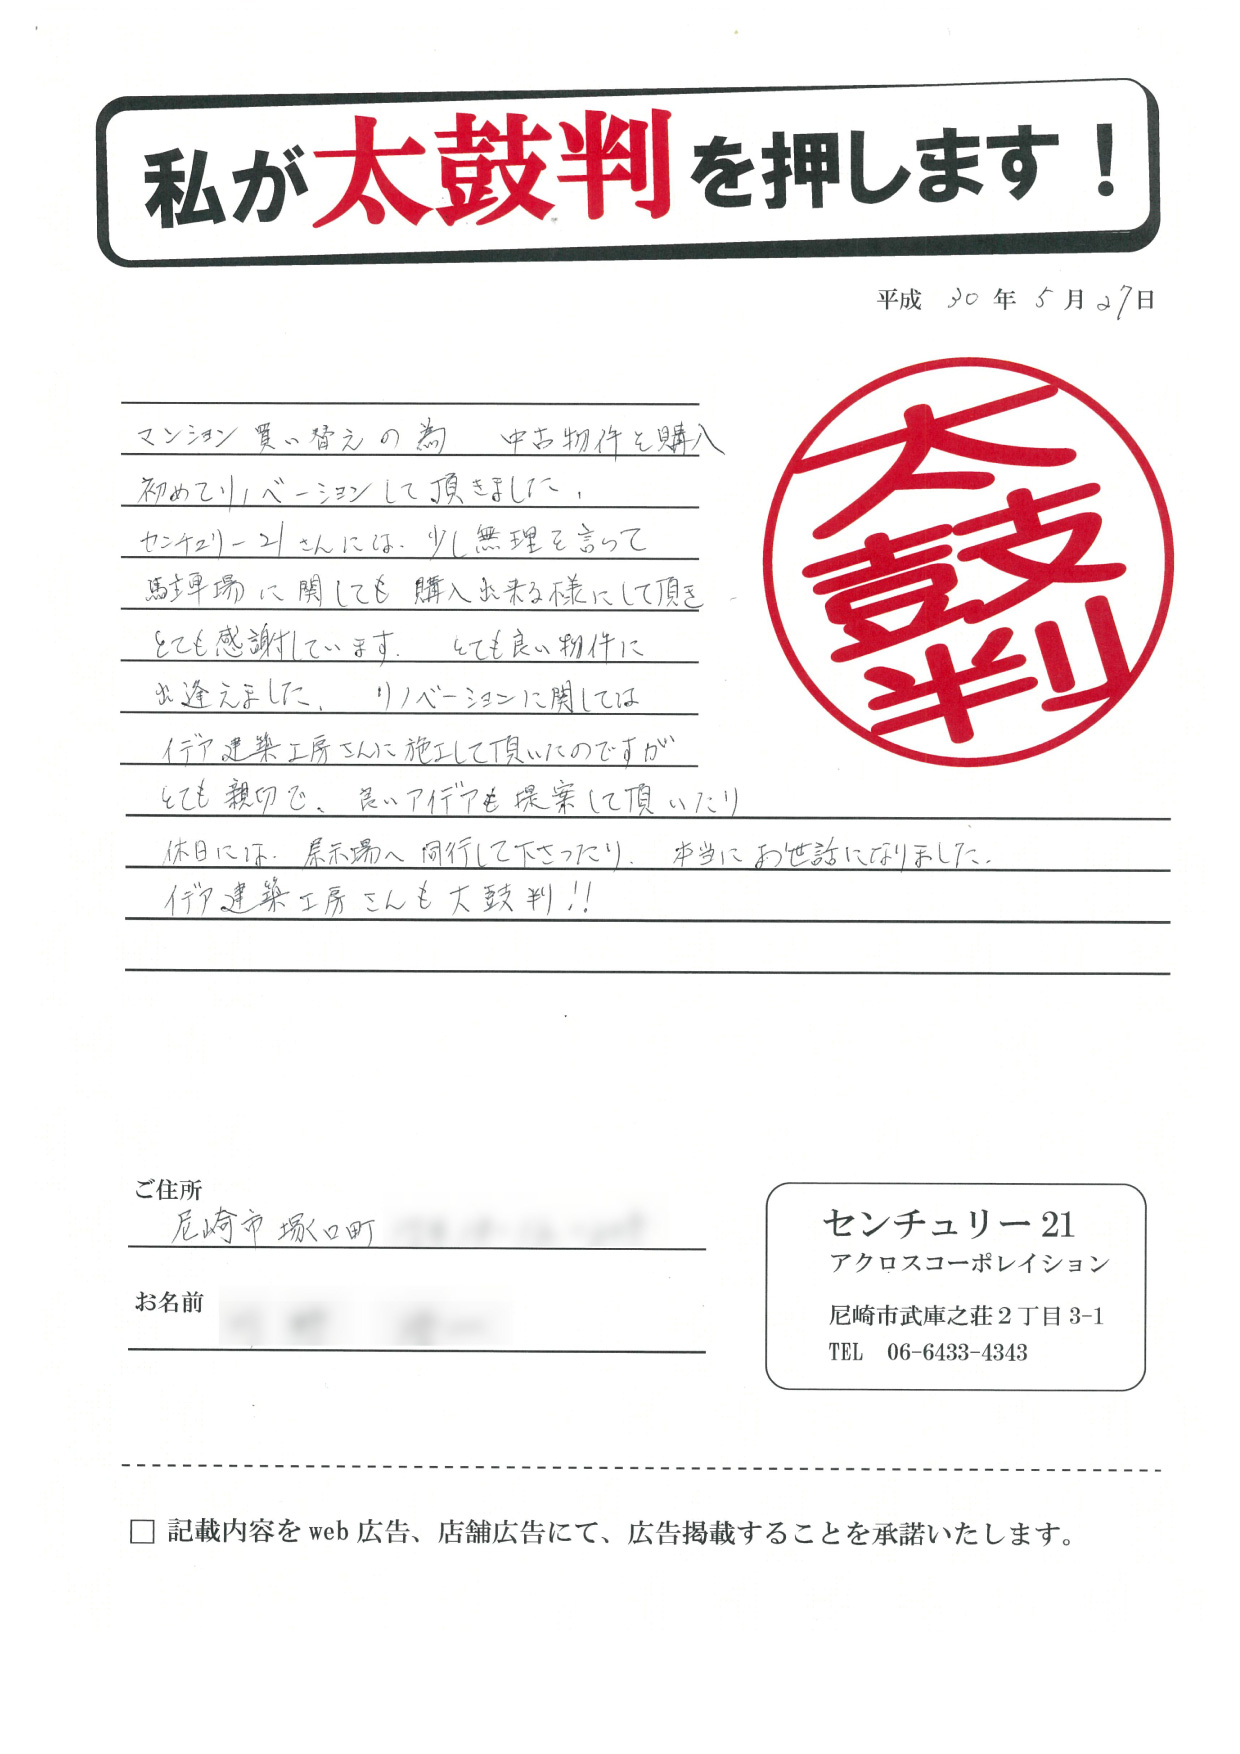 私が太鼓判を押します!
平成 30 年 5 月 27 日
マンション買い替えの為 中古物件を購入
初めてリノベーションして頂きました。
センチュリー21さんには、少し無理を言って
駐車場に関しても購入出来る様にして頂き
とても感謝しています。 とても良い物件に
出逢えました。 リノベーションに関しては
イデア建築工房さんに施工して頂いたのですが
とても親切で、良いアイデアも提案して頂いたり
休日には、展示場へ同行して下さったり、本当にお世話になりました。
イデア建築工房さんも太鼓判!!
太鼓判
ご住所
尼崎市塚口町
お名前
センチュリー21
アクロスコーポレイション
尼崎市武庫之荘2丁目3-1
TEL 06-6433-4343
□ 記載内容をweb広告、店舗広告にて、広告掲載することを承諾いたします。